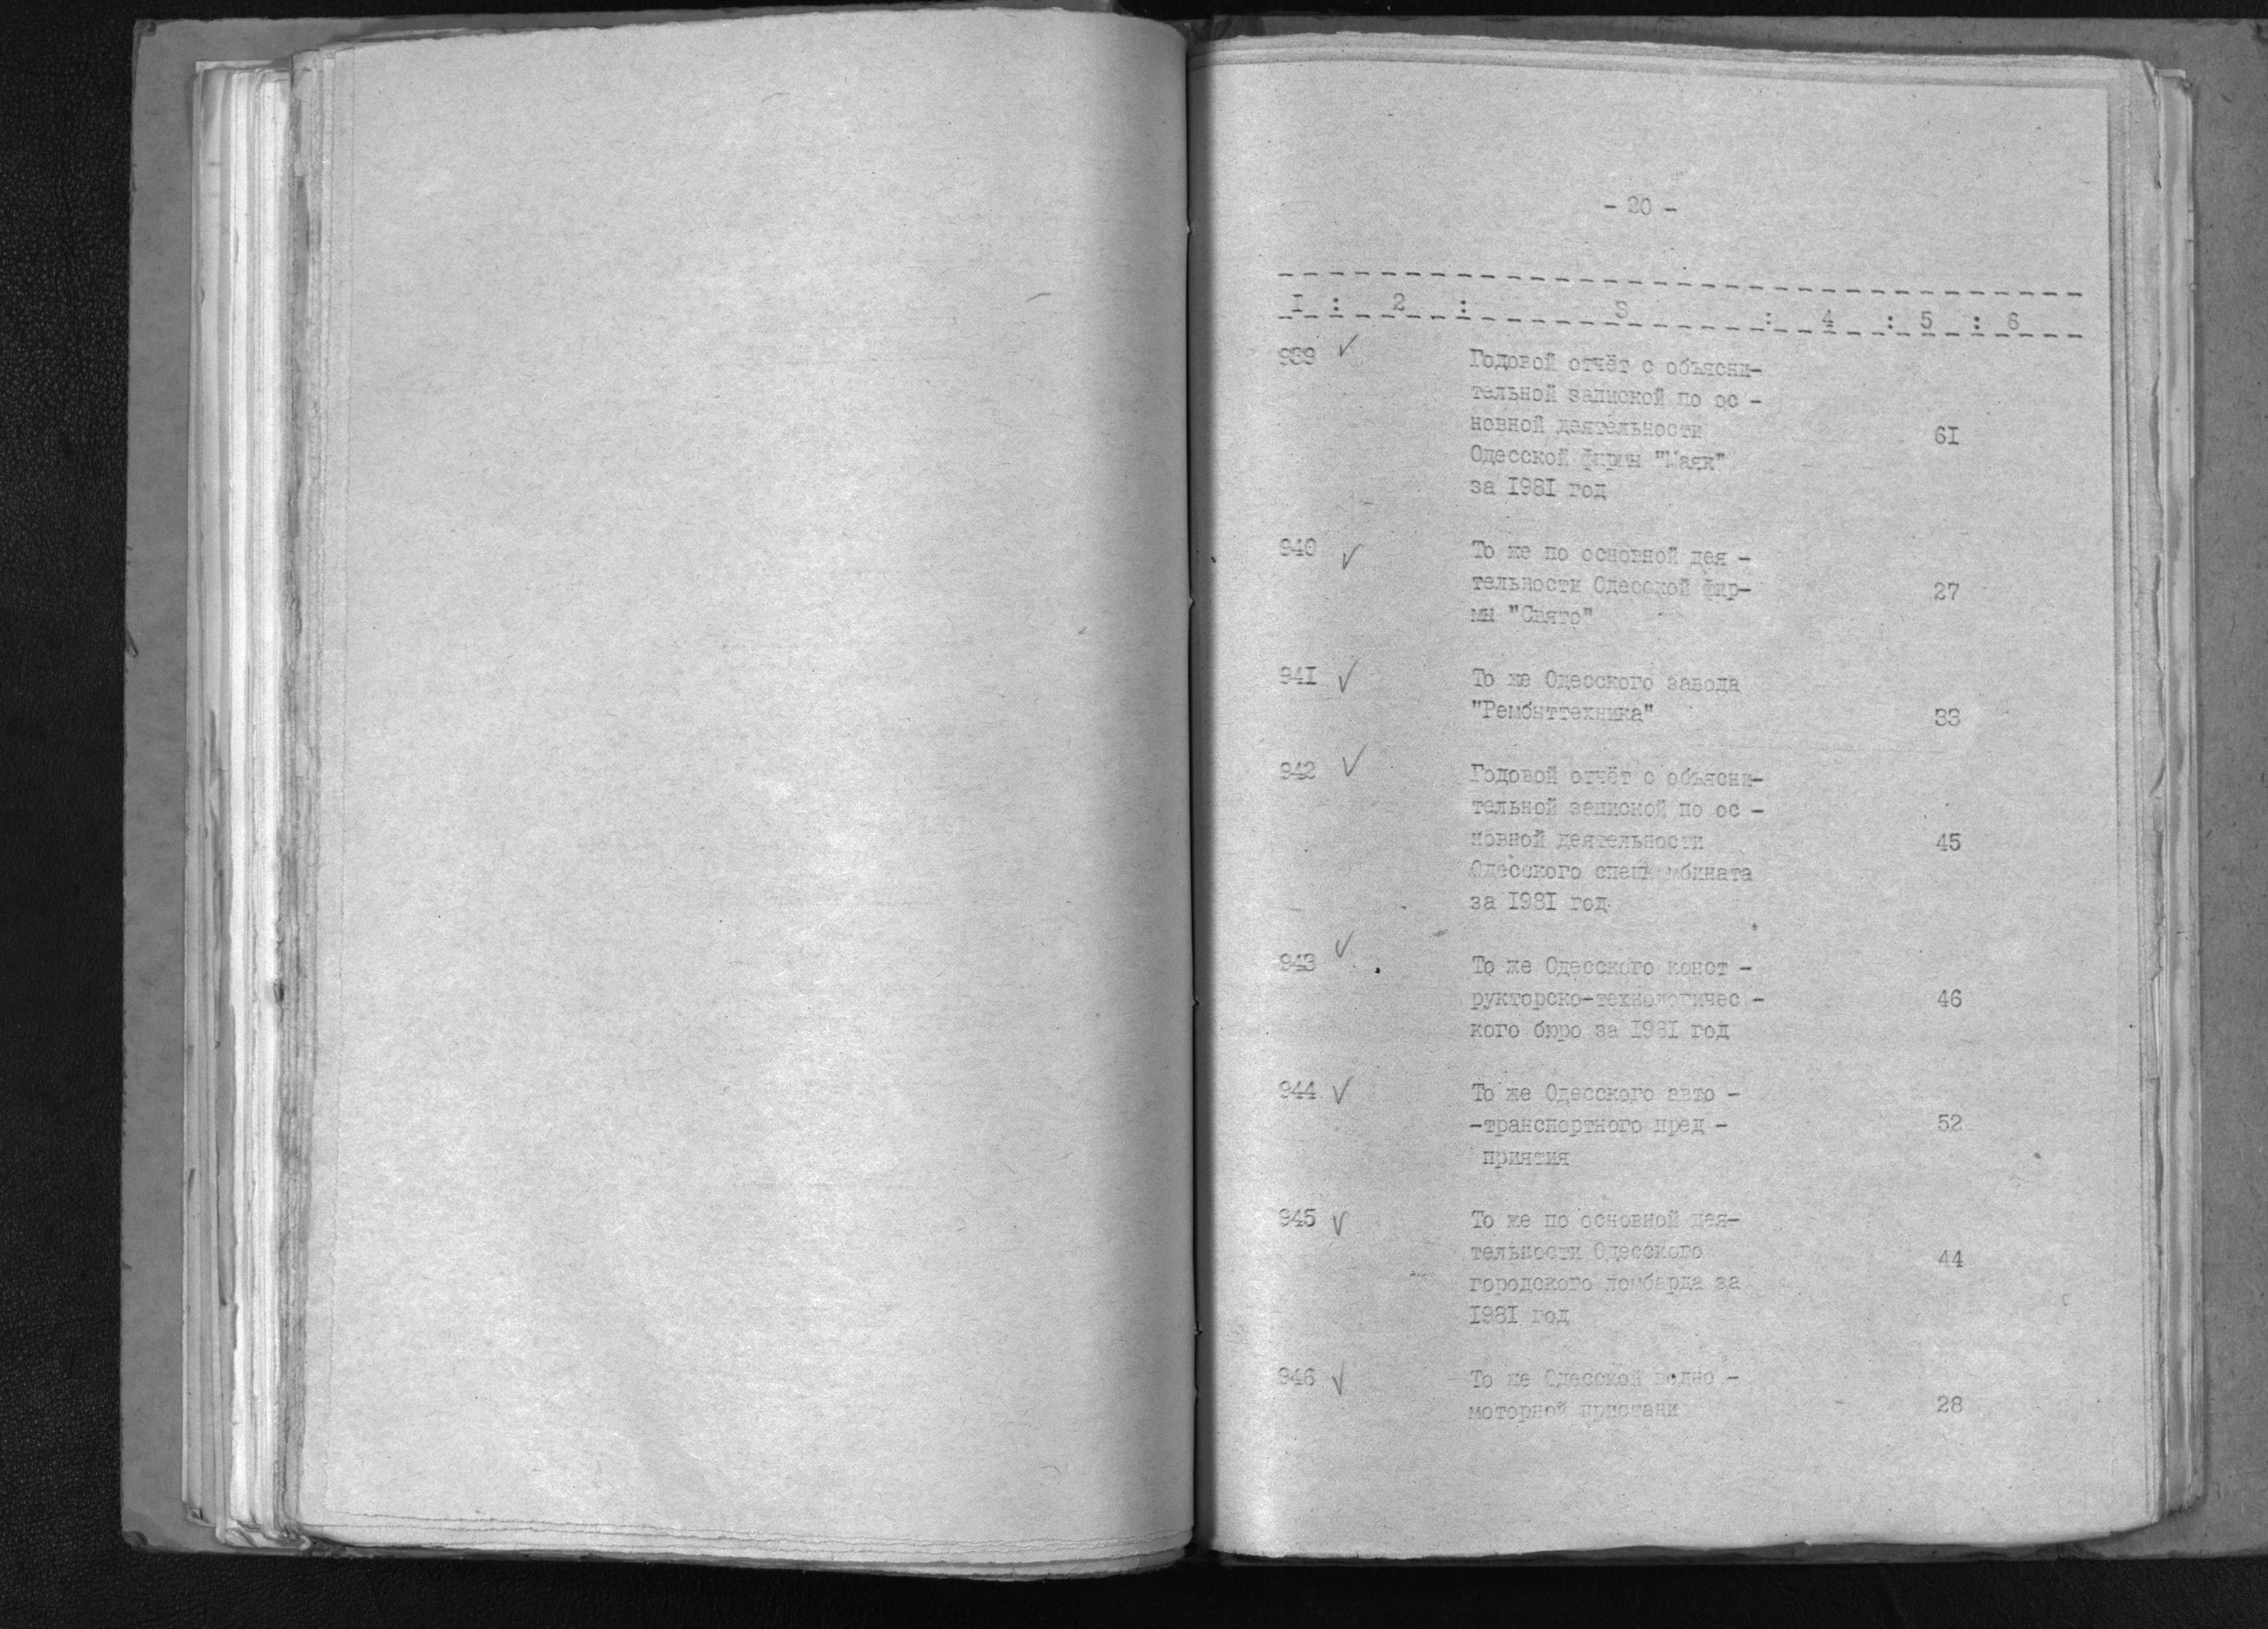 - 20 -
I : 2 : 3 : 4 : 5 : 6
939 ✓ Годовой отчёт с объясни-
тельной запиской по ос -
новной деятельности 61
Одесской фирмы "Маяк"
за 1981 год
940 ✓ То же по основной дея -
тельности Одесской фир- 27
мы "Свято"
941 ✓ То же Одесского завода
"Рембыттехника" 33
942 ✓ Годовой отчёт с объясни-
тельной запиской по ос -
новной деятельности 45
Одесского спецкомбината
за 1981 год
943 ✓ То же Одесского конст -
рукторско-технологичес - 46
кого бюро за 1981 год
944 ✓ То же Одесского авто -
-транспортного пред - 52
приятия
945 ✓ То же по основной дея-
тельности Одесского 44
городского ломбарда за
1981 год
946 ✓ То же Одесской водно -
моторной пристани 28